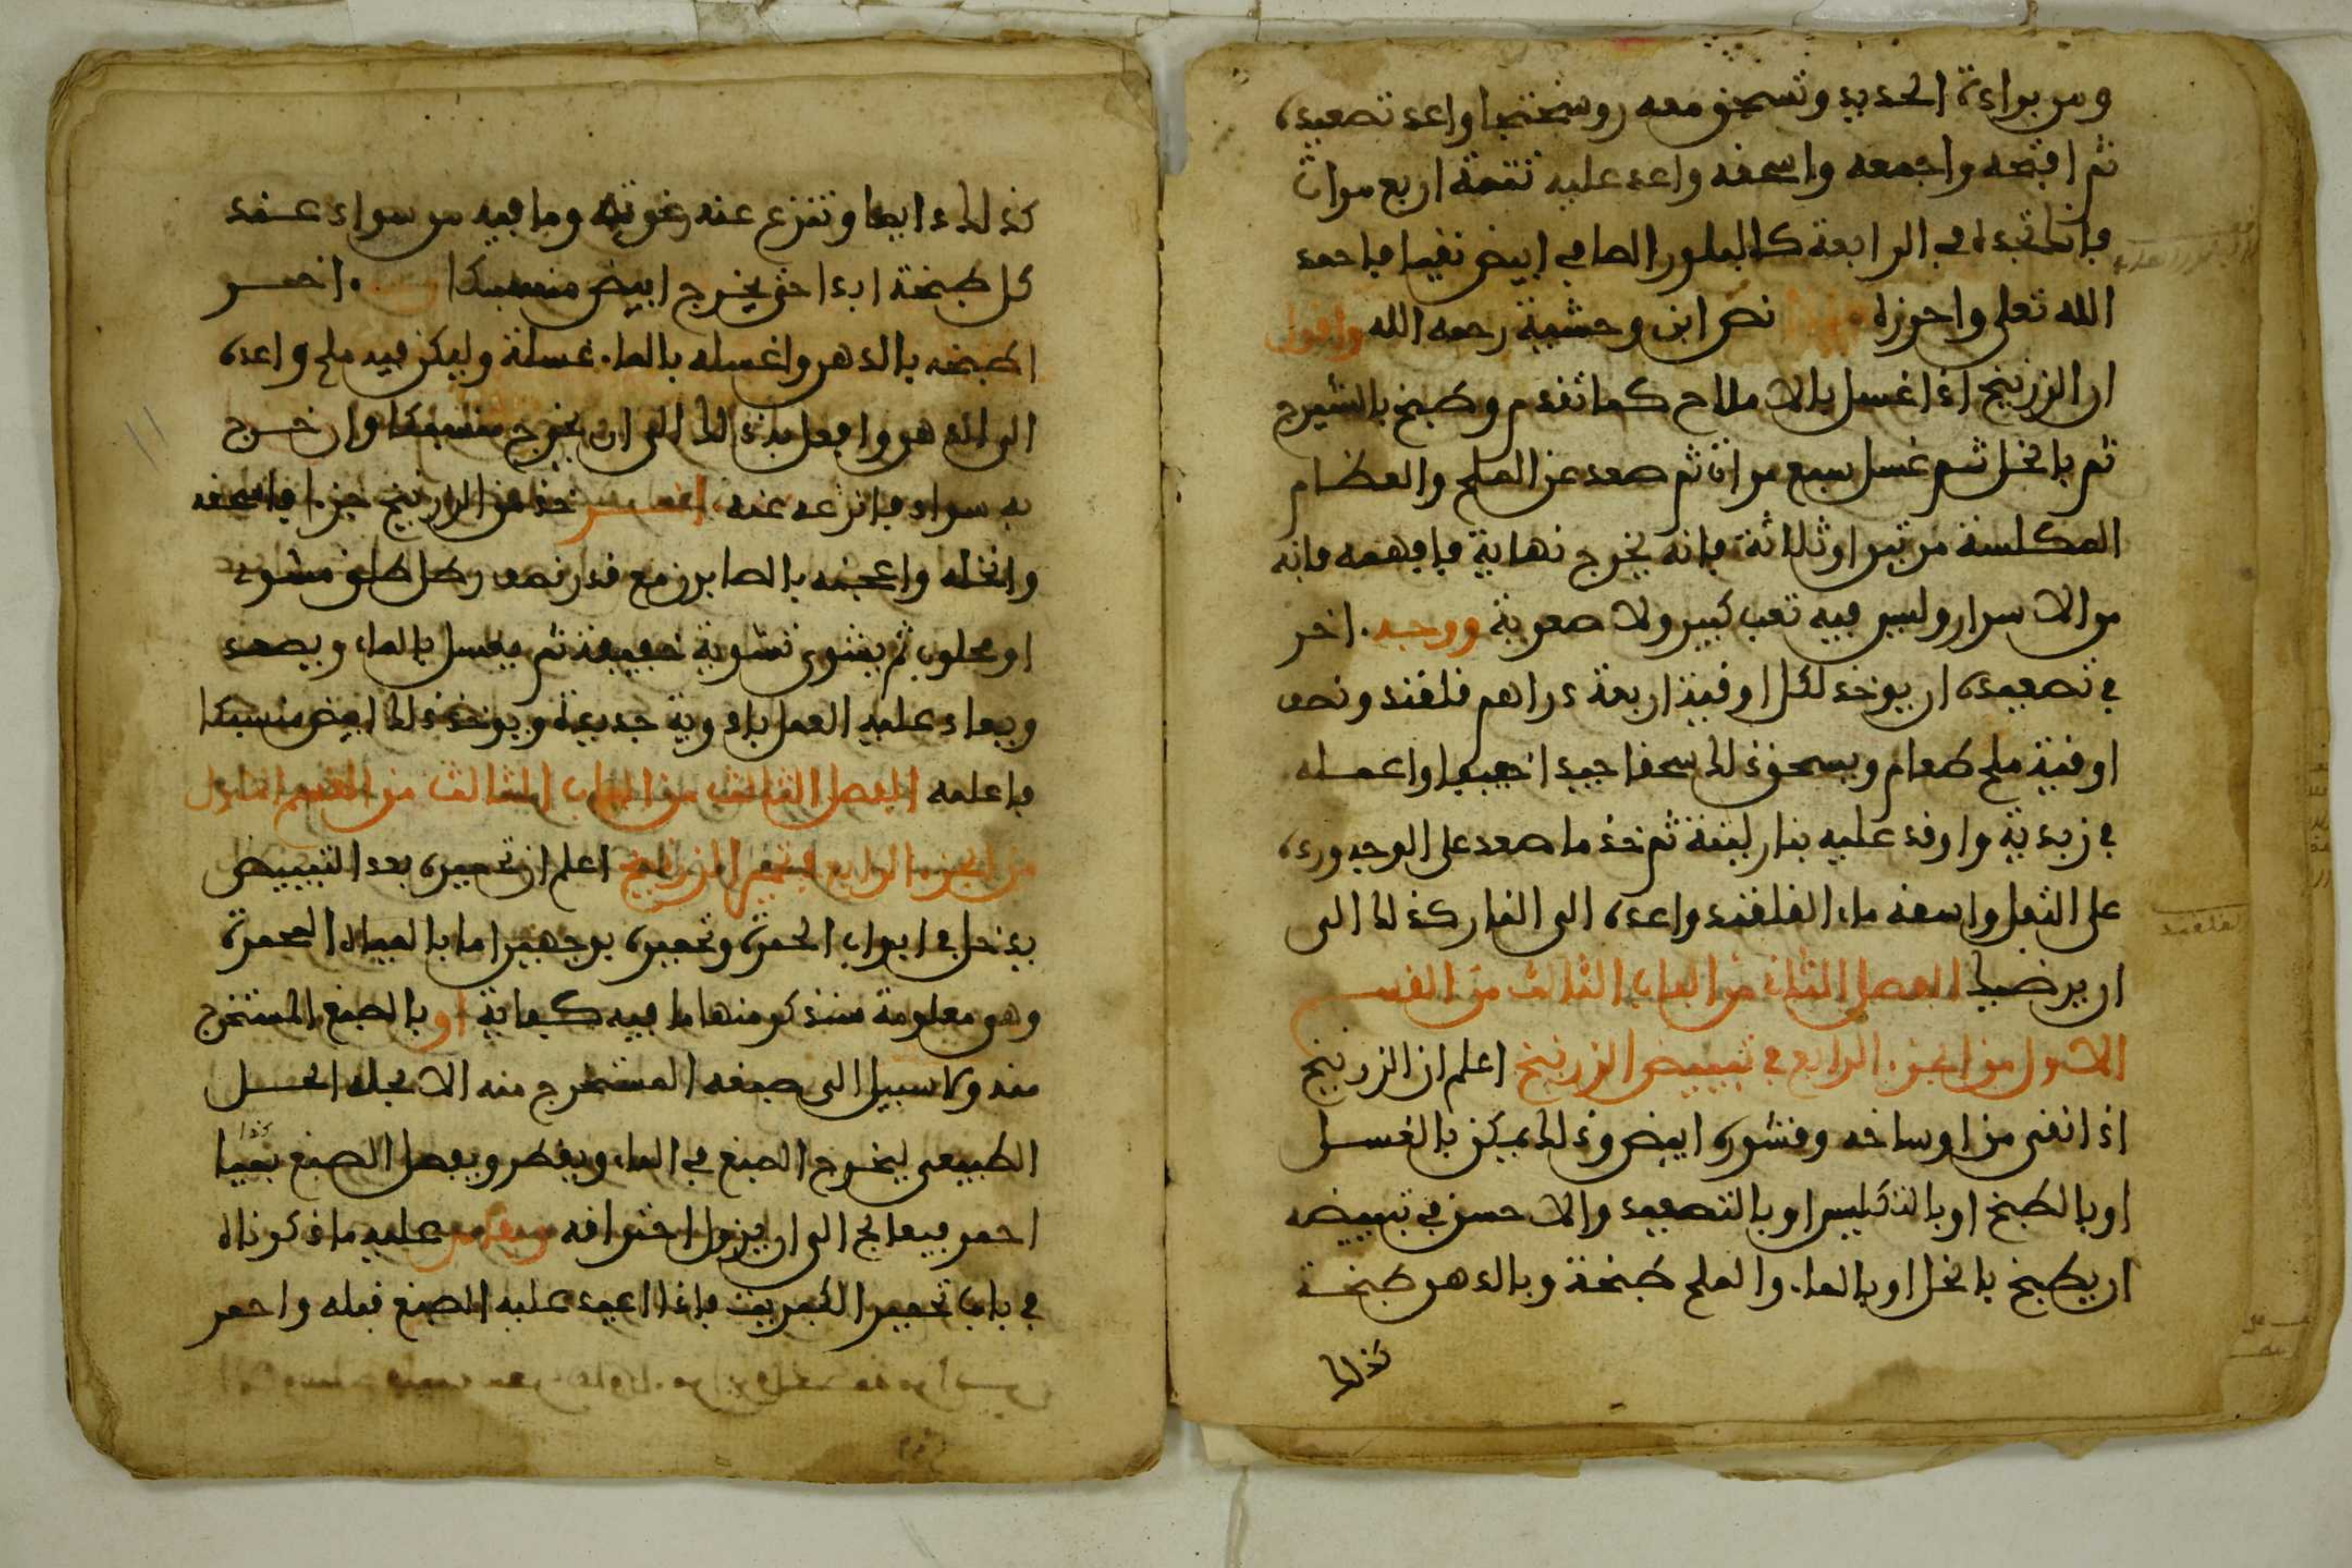 ومن برادة الحديد وتسحق معه روسختجا واعد تصعيده
ثم افتحه واجمعه واسحقه واعد عليه تتمة اربع مرات
فانك تجده في الرابعة كالبلور الصافي ابيض نقيا فاحمد
الله تعلى واحرزه نص ابن وحشية رحمه الله واقول
ان الزرنيخ اذا غسل بالاملاح كما تقدم وطبخ بالشيرج
ثم بالخل ثم غسل سبع مرات ثم صعد عن الملح والعظام
المكلسة مرتين او ثلاثة فانه يخرج نهاية فافهمه فانه
من الاسرار وليس فيه تعب كبير ولا صعوبة ووجه اخر
في تصعيده ان يوخذ لكل اوقية اربعة دراهم قلقند ونصف
اوقية ملح طعام ويسحق ذلك سحقا جيدا خفيفا واعمله
في زبدية واوقد عليه بنار لينة ثم خذ ما صعد على الوجه ورده
على الثفل واسقه ماء القلقند واعده الى النار كذلك الى
ان يرضيك الفصل الثاني من الباب الثالث من القسم
الاول من الجزء الرابع في تبييض الزرنيخ اعلم ان الزرنيخ
اذا نقي من اوساخه وقشوره ابيض وذلك يمكن بالغسل
او بالطبخ او بالتكليس او بالتصعيد والاحسن في تبييضه
ان يطبخ بالخل او بالماء والملح طبخة وبالدهن طبخة
كذلك
كذلك ايضا وتنزع عنه رغوته وما فيه من سواد عند
كل طبخة ابدا حتى يخرج ابيض منسبكا اخر
اطبخه بالدهن واغسله بالماء غسلة وليكن فيه ملح واعده
الى الدهن وافعل به ذلك الى ان يخرج منسبكا وان خرج
به سواد فانزعه عنه اخر خذ من الزرنيخ جزءا فاسحقه
وانخله واعجنه بالصابون مع قدر نصف رطل طلق مشوي
او محلوب ثم يشوى تشوية خفيفة ثم يغسل بالماء ويصعد
ويعاد عليه العمل بادوية جديدة ويوخذ ذلك ابيض منسبكا
فاعلمه الفصل الثالث من الباب الثالث من القسم الاول
من الجزء الرابع في تحمير الزرنيخ اعلم ان تحميره بعد التبييض
يدخل في ابواب الحمرة وتحميره بوجهين اما بالمياه المحمرة
وهي معلومة سنذكر منها ما فيه كفاية او بالصبغ المستخرج
منه ولا سبيل الى صبغه المستخرج منه الا بحله الحل
الطبيعي ليخرج الصبغ في الماء ويقطر ويفصل الصبغ نقيا
كذا
احمر فيعالج الى ان يزول احتراقه عليه ما ذكرناه
في باب تحمير الكبريت فاذا اعيد عليه الصبغ قبله واحمر